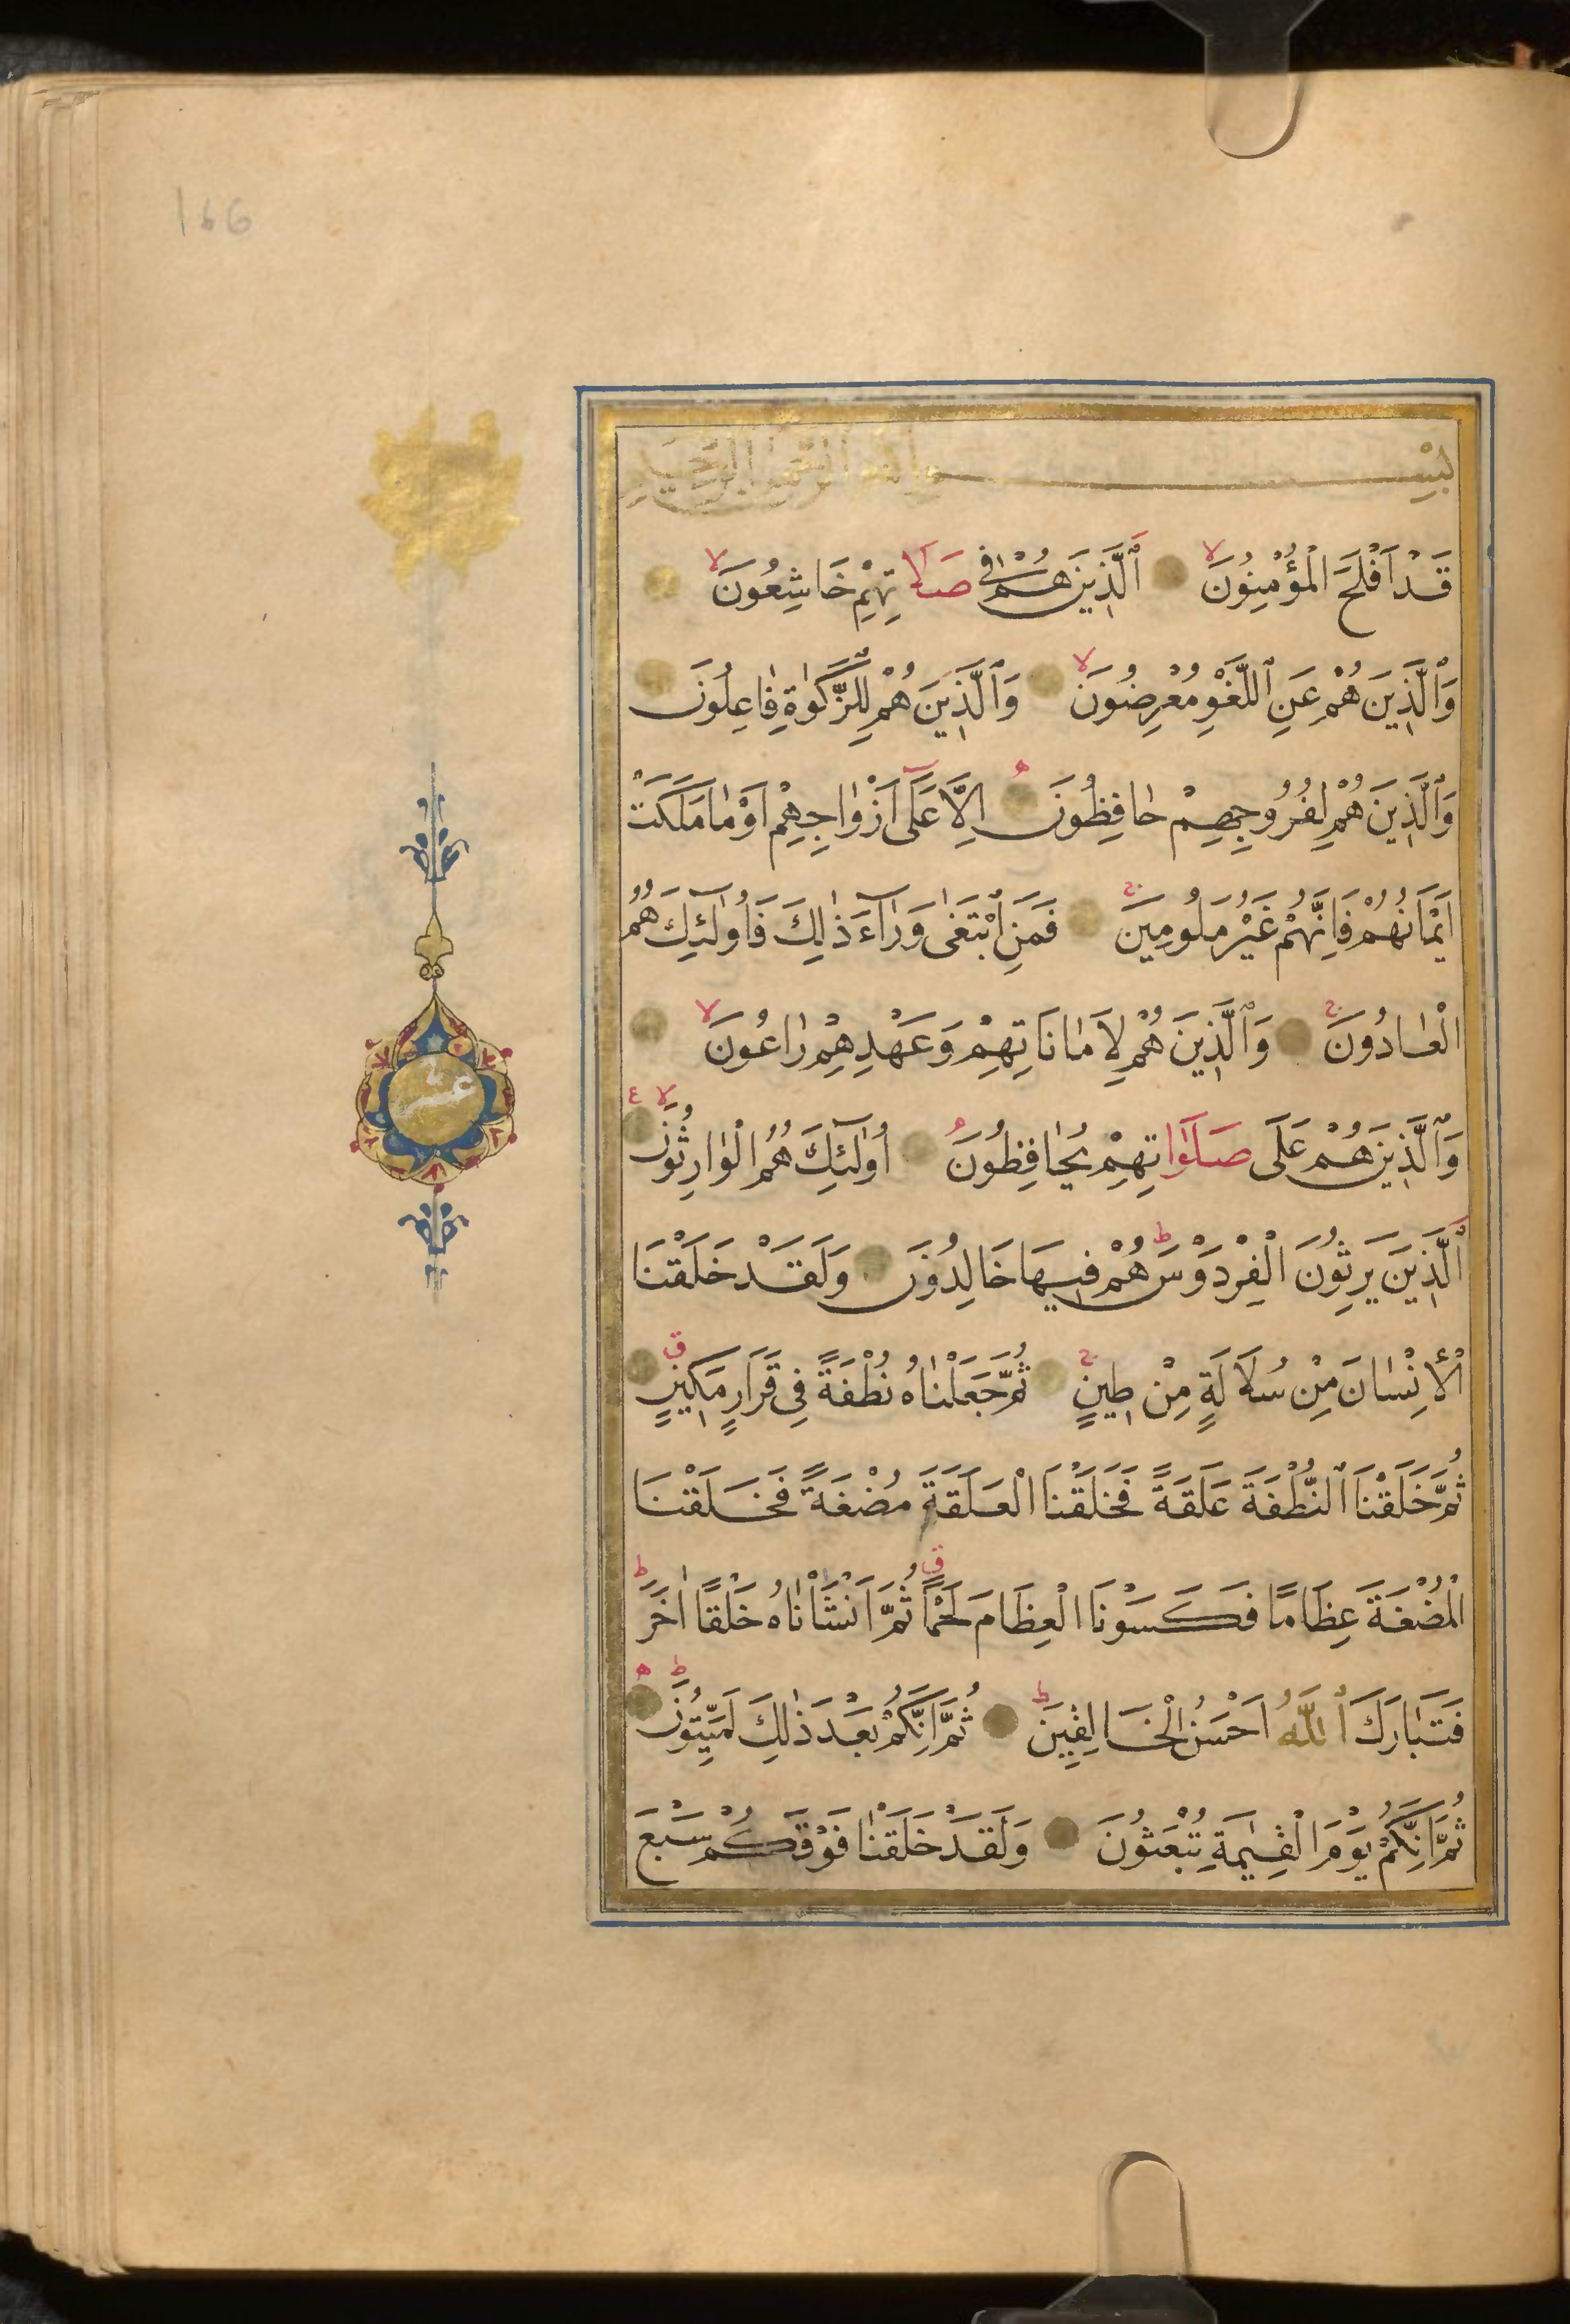 166
بِسْمِ اللهِ الرَّحْمٰنِ الرَّحِيمِ
قَدْ اَفْلَحَ الْمُؤْمِنُونَۙ ٱلَّذِينَ هُمْ فِى صَلَاتِهِمْ خَاشِعُونَۙ
وَٱلَّذِينَ هُمْ عَنِ ٱللَّغْوِ مُعْرِضُونَۙ وَٱلَّذِينَ هُمْ لِلزَّكٰوةِ فَاعِلُونَ
وَٱلَّذِينَ هُمْ لِفُرُوجِهِمْ حَافِظُونَ اِلَّا عَلَٓى اَزْوَاجِهِمْ اَوْ مَا مَلَكَتْ
اَيْمَانُهُمْ فَاِنَّهُمْ غَيْرُ مَلُومِينَۚ فَمَنِ ابْتَغٰى وَرَٓاءَ ذٰلِكَ فَاُولٰٓئِكَ هُمُ
الْعَادُونَۚ وَٱلَّذِينَ هُمْ لِاَمَانَاتِهِمْ وَعَهْدِهِمْ رَاعُونَۙ
وَٱلَّذِينَ هُمْ عَلَى صَلَوَاتِهِمْ يُحَافِظُونَ اُولٰٓئِكَ هُمُ الْوَارِثُونَۙ ع
ٱلَّذِينَ يَرِثُونَ الْفِرْدَوْسَۜط هُمْ فِيهَا خَالِدُونَ وَلَقَدْ خَلَقْنَا
الْاِنْسَانَ مِنْ سُلَالَةٍ مِنْ طِينٍۚ ثُمَّ جَعَلْنَاهُ نُطْفَةً فِى قَرَارٍ مَكِينٍ ق
ثُمَّ خَلَقْنَا ٱلنُّطْفَةَ عَلَقَةً فَخَلَقْنَا الْعَلَقَةَ مُضْغَةً فَخَلَقْنَا
الْمُضْغَةَ عِظَامًا فَكَسَوْنَا الْعِظَامَ لَحْمًا ق ثُمَّ اَنْشَأْنَاهُ خَلْقًا اٰخَرَ ط
فَتَبَارَكَ ٱللّٰهُ اَحْسَنُ الْخَالِقِينَ ط ثُمَّ اِنَّكُمْ بَعْدَ ذٰلِكَ لَمَيِّتُونَ ط
ثُمَّ اِنَّكُمْ يَوْمَ الْقِيٰمَةِ تُبْعَثُونَ وَلَقَدْ خَلَقْنَا فَوْقَكُمْ سَبْعَ
عشر